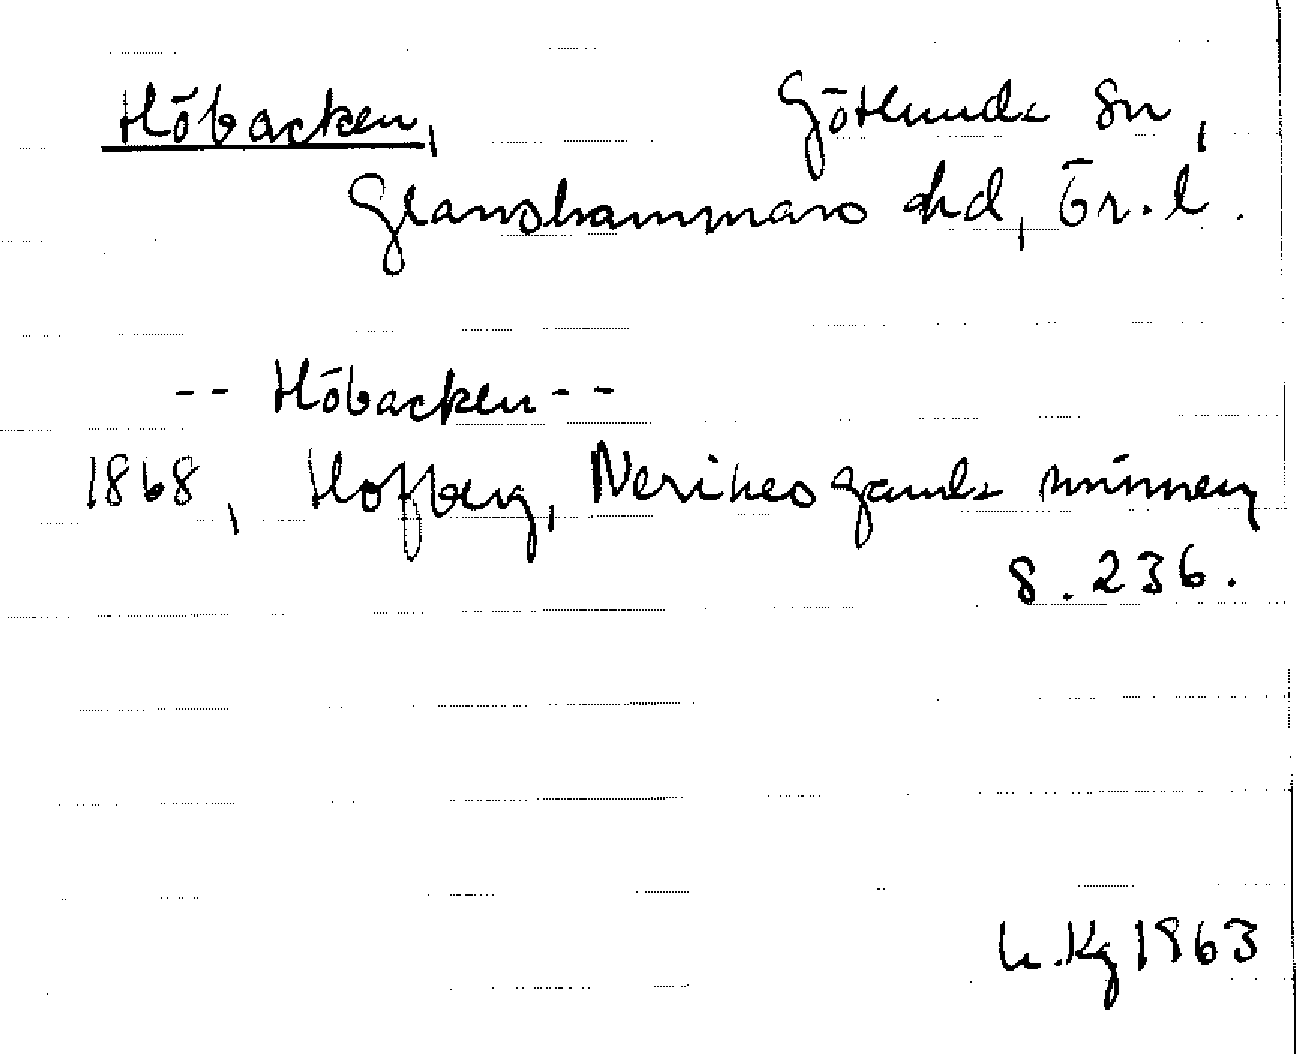 Höbacken, Götlunda sn,
Glanshammars hd, Ör.l.
-- Höbacken --
1868, Hofberg, Nerikes gamla minnen,
s. 236.
Kg 1963